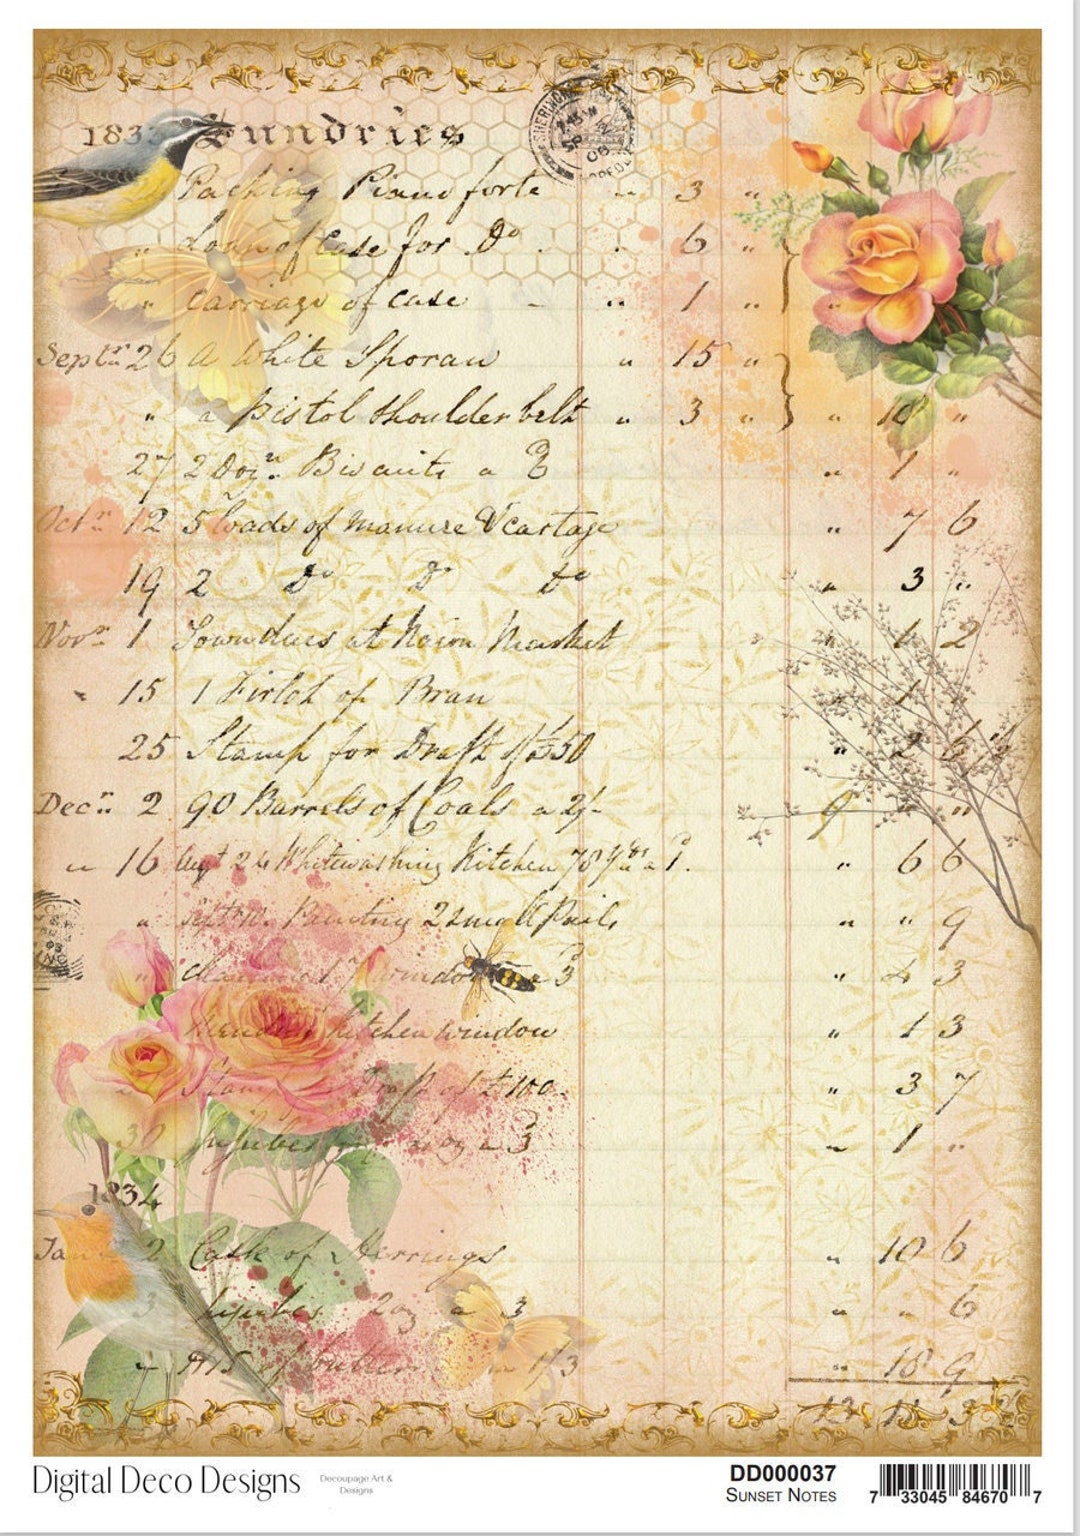 183 Sundries
Packing Piano forte " 3 "
" Loan of Case for Do . " 6 "
" carriage of case - " 1 " "
Septr 26 a White Sporan " 15 "
" a Pistol shoulder belt " 3 " " 18 "
27 2 Dozn. Biscuits a " 1 "
Octr 12 5 loads of manure & cartage " 7 6
19 2 Do Do Do " 3 "
Novr 1 Town dues at Nairn Market " 1 2
" 15 1 Firlot of Bran " 1
25 Stamp for Draft of £50 " 2 6
Decr 2 90 Barrels of Coals a 2/- 9 "
" 16 Augt 24 Whitewashing Kitchen 78 Yds a 1. " 6 6
" Septr 10. Painting 2 small Pails " " 9
" cleaning 17 windows a 3 " 4 3
Mending Kitchen window " 1 3
Stamp Draft of £100. " 3 7
30 Jujubes a 3 " 1 "
1834
Jan 2 Cask of Herrings " 10 6
3 Jujubes 2 oz a 3 " " 6
of butter 1/3 " 18 9
13 11 3
Digital Deco Designs
Decoupage Art &
Designs
DD000037
Sunset Notes
7 33045 84670 7